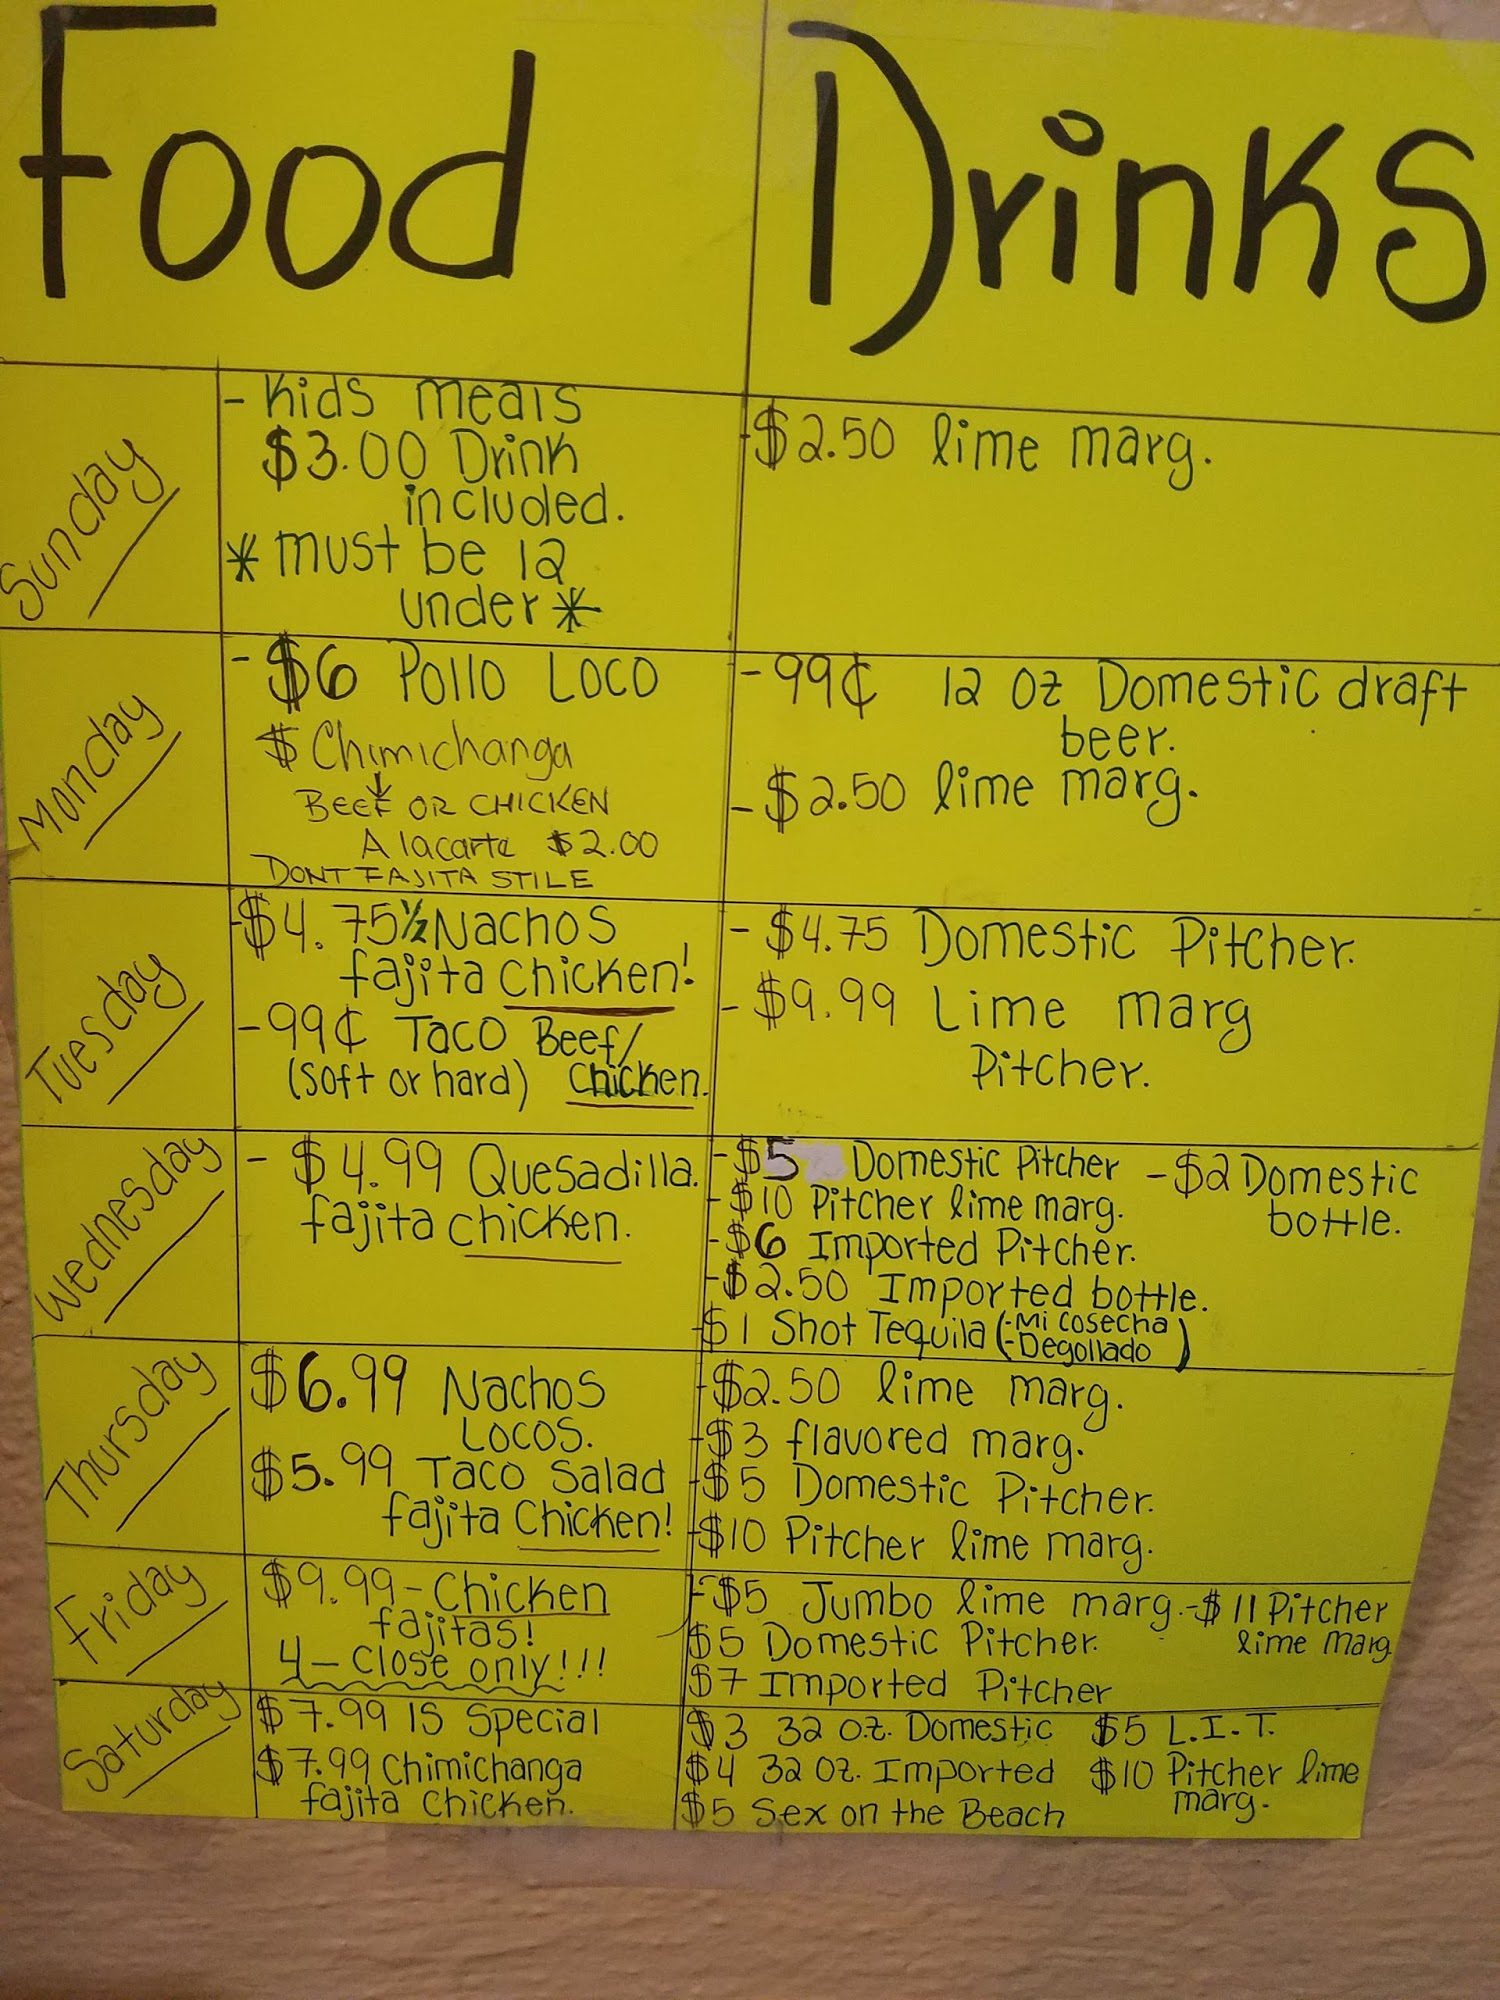 Food
Drinks
Sunday
- Kids meals
$3.00 Drink
included.
* must be 12
under *
- $2.50 lime marg.
Monday
- $6 Pollo Loco
$ Chimichanga
BEEF OR CHICKEN
A lacarte $2.00
DONT FAJITA STILE
- 99¢ 12 oz Domestic draft
beer.
- $2.50 lime marg.
Tuesday
- $4.75 ½ Nachos
fajita Chicken!
- 99¢ Taco Beef/
(soft or hard) Chicken.
- $4.75 Domestic Pitcher.
- $9.99 Lime marg
Pitcher.
Wednesday
- $4.99 Quesadilla.
fajita chicken.
- $5 Domestic Pitcher
- $10 Pitcher lime marg.
- $6 Imported Pitcher.
- $2.50 Imported bottle.
- $1 Shot Tequila (-Mi cosecha
-Degollado)
- $2 Domestic
bottle.
Thursday
$6.99 Nachos
Locos.
$5.99 Taco Salad
fajita Chicken!
- $2.50 lime marg.
- $3 flavored marg.
- $5 Domestic Pitcher.
- $10 Pitcher lime marg.
Friday
$9.99 - Chicken
fajitas!
4 - Close only!!!
- $5 Jumbo lime marg.
$5 Domestic Pitcher.
$7 Imported Pitcher
- $11 Pitcher
lime marg
Saturday
$7.99 IS Special
$7.99 Chimichanga
fajita chicken.
$3 32 oz. Domestic
$4 32 oz. Imported
$5 Sex on the Beach
$5 L.I.T.
$10 Pitcher lime
marg.